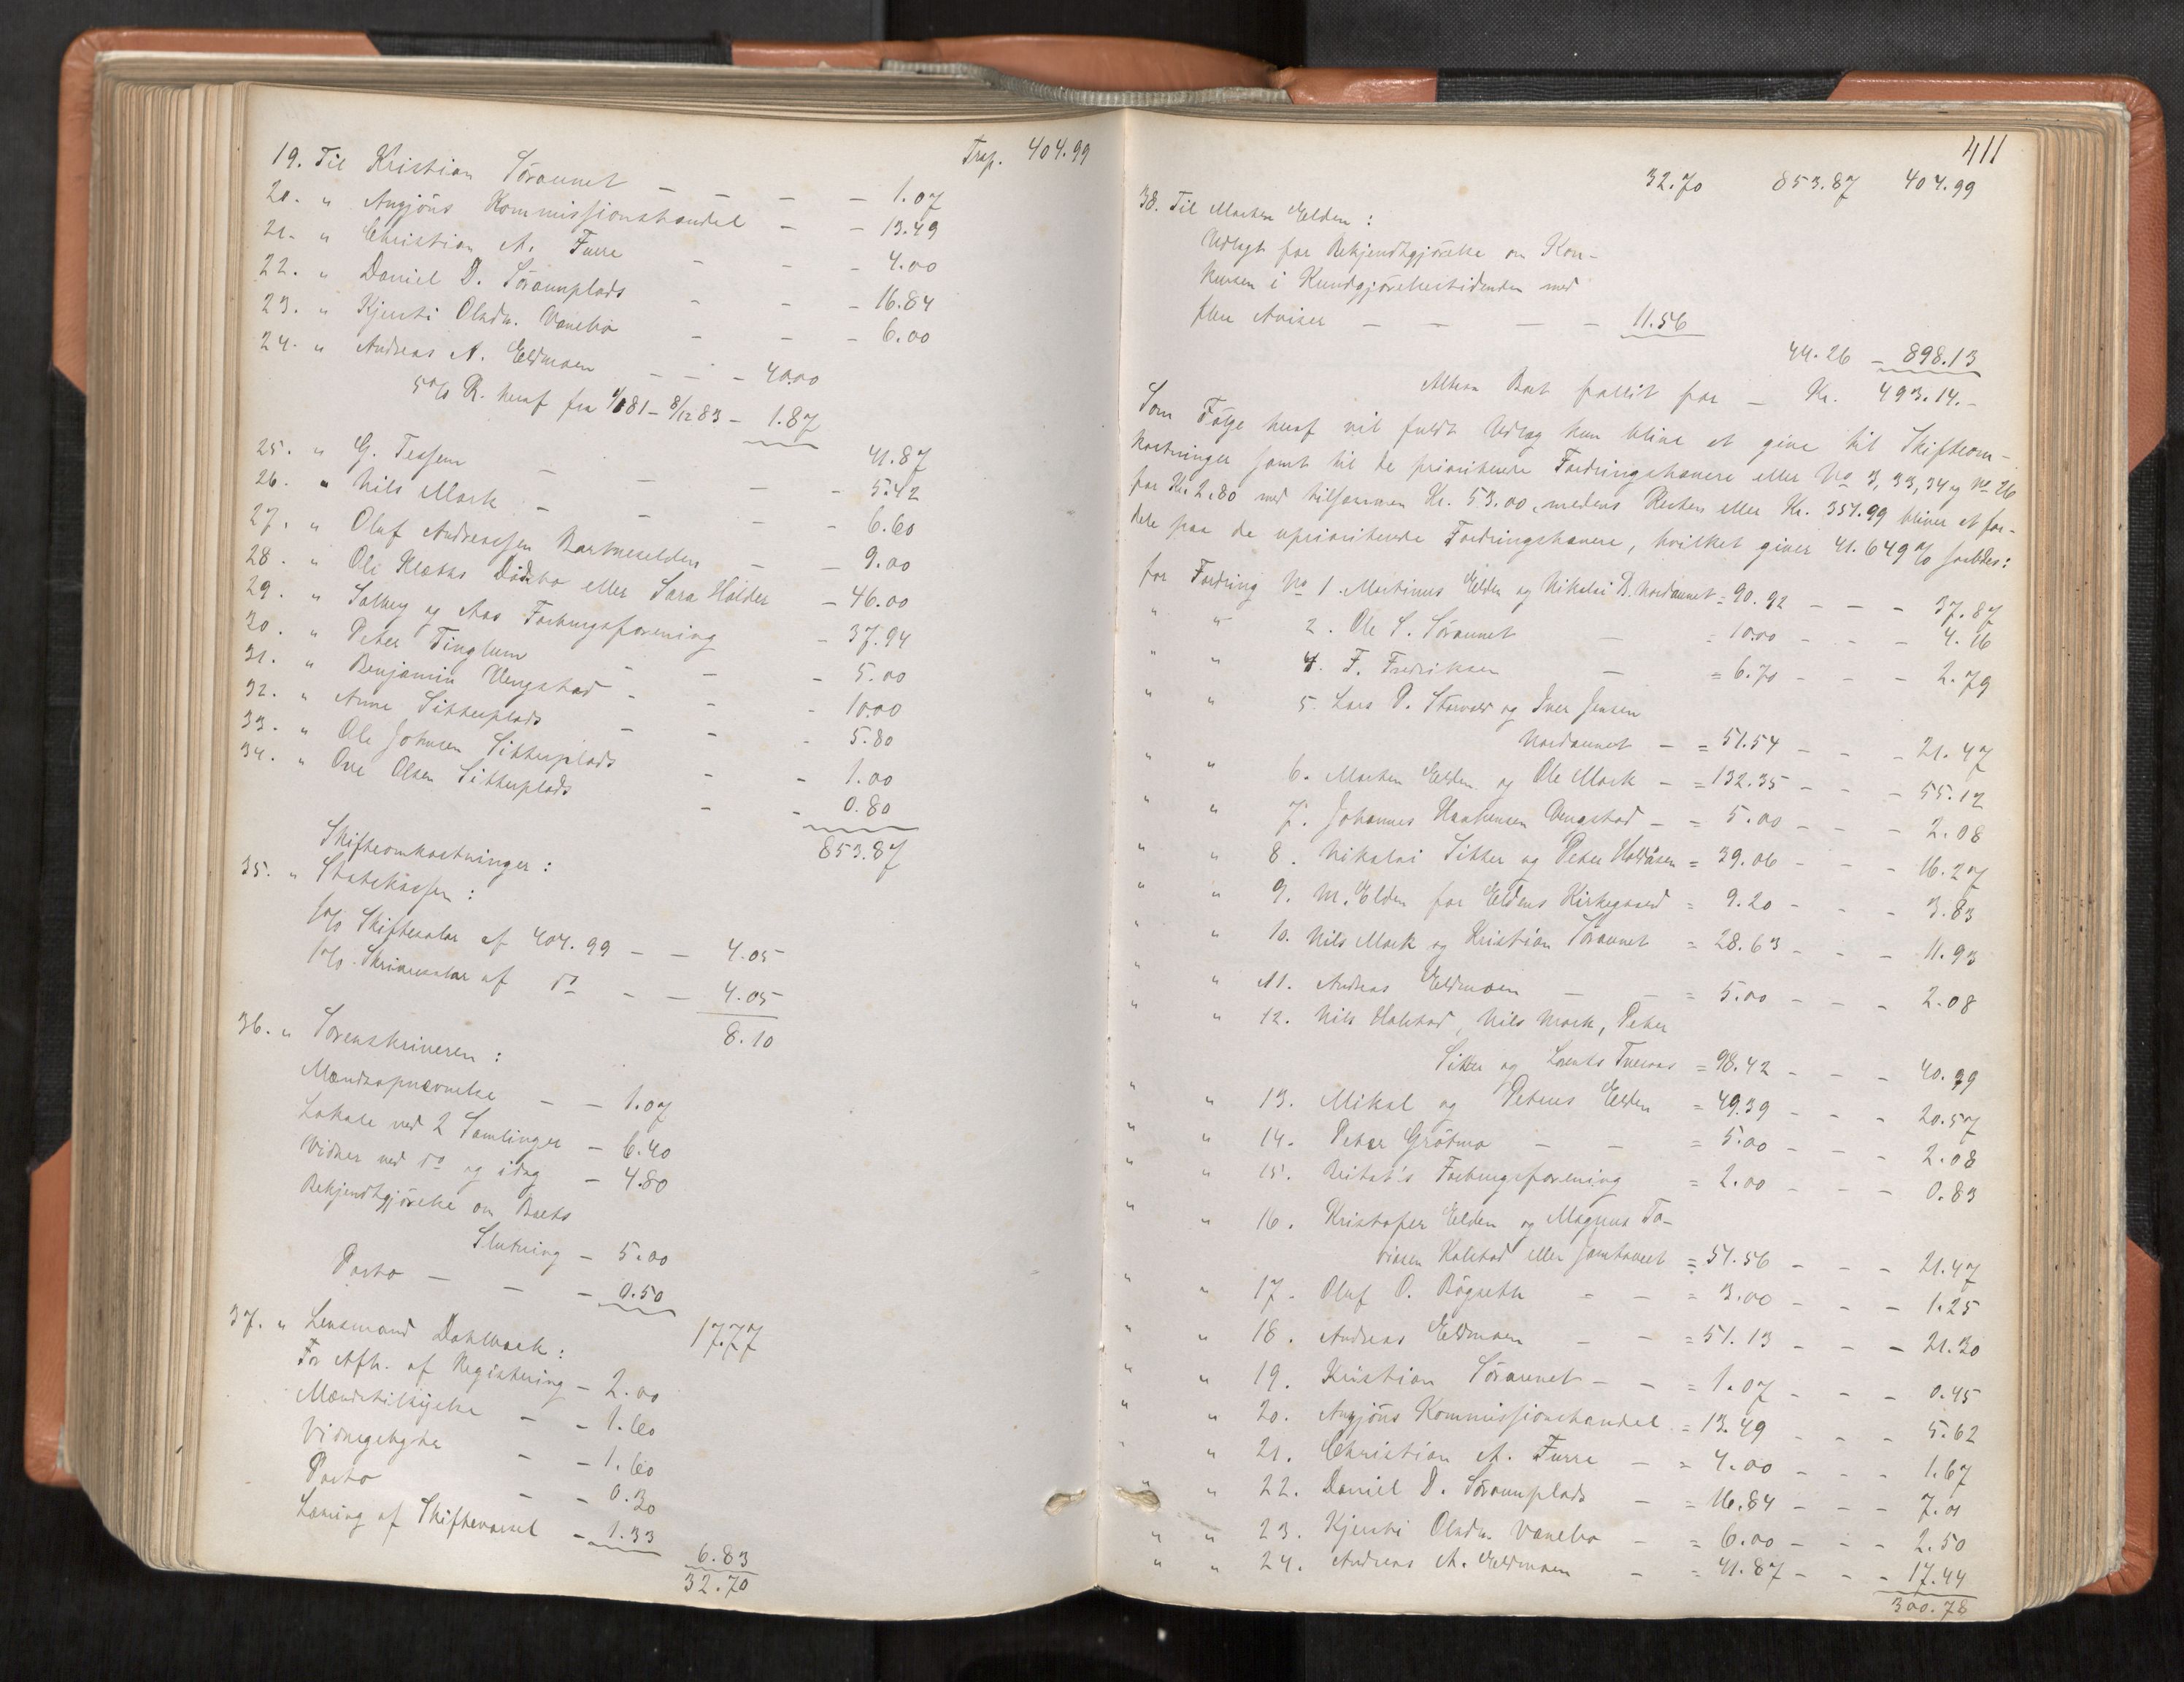 Trsp. 404.99
19. Til Kristian Søraunet — — — — 1.07
20. " Angjöns Kommissionshandel — — 13.49
21. " Christian A. Furre — — — 4.00
22. " Daniel D. Søraunplads — — — 16.84
23. " Kjersti Olsdr. Vanebo — — — 6.00
24. " Andreas A. Eldmoen — — — 40.00
5% R. heraf fra 81 – 8/12 83 — 1.87
41.87
25. " G. Tessem — — — 5.42
26. " Nils Mork — — — — 6.60
27. " Oluf Andreassen Bartneselden — — 9.00
28. " Ole Klokks Dødsbo eller Sara Holder — 46.00
29. " Solberg og Aas Forbrugsforening — 37.94
30. " Peter Tinglum — — — 5.00
31. " Benjamin Vengstad — — — 10.00
32. " Anne Sitterplads — — — 5.80
33. " Ole Johnsen Sitterplads — — 1.00
34. " Ove Olsen Sitterplads — — 0.80
853.87
Skifteomkostninger:
35. " Statskassen:
1% Skiftesalær af 404.99 — — 4.05
1% Skriversalær af do — — 4.05
8.10
36. " Sorenskriveren:
Mændsopnævnelse — — 1.07
Lokale ved 2 Samlinger — 6.40
Vidner ved do og idag — 4.80
Bekjendtgjørelse om Boets
Slutning — 5.00
Porto — — — 0.50
17.77
37. " Lensmand Dahlback:
For Afh. af Registering — 2.00
Mændstilsigelse — — 1.60
Vidnegebyhr — — 1.60
Porto — — 0.30
Løsning af Skiftevarsel — 1.33
6.83
32.70
411
32.70 853.87 404.99
38. Til Morten Elden:
Udlagt for Bekjendtgjørelse om Kon-
kursen i Kundgjørelsestidenden med
flere Aviser — — — — 11.56
44.26 — 898.13
Altsaa Boet fallit for — Kr. 493.14.-
Som Følge heraf vil fuldt Udlæg kun blive at give til Skifteom-
kostninger samt til de prioriterede Fordringshavere eller No 3, 33, 34 og No 26
for Kr. 2.80 med tilsammen Kr. 53.00, medens Resten eller Kr. 351.99 bliver at for-
dele paa de uprioriterede Fordringshavere, hvilket giver 41.649% saaledes:
for Fordring No 1. Martinus Elden og Nikolai B. Nordaunet = 90.92 — — — 37.87
" " 2. Ole S. Søraunet — = 10.00 — — — 4.16
" " 4. F. Fredriksen — = 6.70 — — — 2.79
" " 5. Lars P. Storvold og Iver Jensen
Nordaunet — = 51.54 — — — 21.47
" " 6. Morten Elden og Ole Mork — = 132.35 — — — 55.12
" " 7. Johannes Haakensen Vengstad — = 5.00 — — — 2.08
" " 8. Nikolai Sitter og Peter Holdåsen = 39.06 — — — 16.27
" " 9. M. Elden for Eldens Kirkegaard = 9.20 — — — 3.83
" " 10. Nils Mork og Kristian Søraunet = 28.63 — — — 11.93
" " 11. Andreas Eldmoen — — = 5.00 — — — 2.08
" " 12. Nils Halstad, Nils Mork, Peter
Sitter og Lorents Tveraas = 98.42 — — — 40.99
" " 13. Mikal og Petrus Elden = 49.39 — — — 20.57
" " 14. Peter Grøtmo — — = 5.00 — — — 2.08
" " 15. Beitstadʼs Forbrugsforening = 2.00 — — — 0.83
" " 16. Kristofer Elden og Magnus To-
biasen Kalstad eller Jomtaunet = 51.56 — — — 21.47
" " 17. Oluf O. Bøgseth — — = 3.00 — — — 1.25
" " 18. Andreas Eldmoen — — = 51.13 — — — 21.30
" " 19. Kristian Søraunet — — = 1.07 — — — 0.45
" " 20. Angjöns Kommissionshandel = 13.49 — — — 5.62
" " 21. Christian A. Furre — = 4.00 — — — 1.67
" " 22. Daniel D. Søraunplads — = 16.84 — — — 7.01
" " 23. Kjersti Olsdr. Vanebo — = 6.00 — — — 2.50
" " 24. Andreas A. Eldmoen — = 41.87 — — — 17.44
300.78